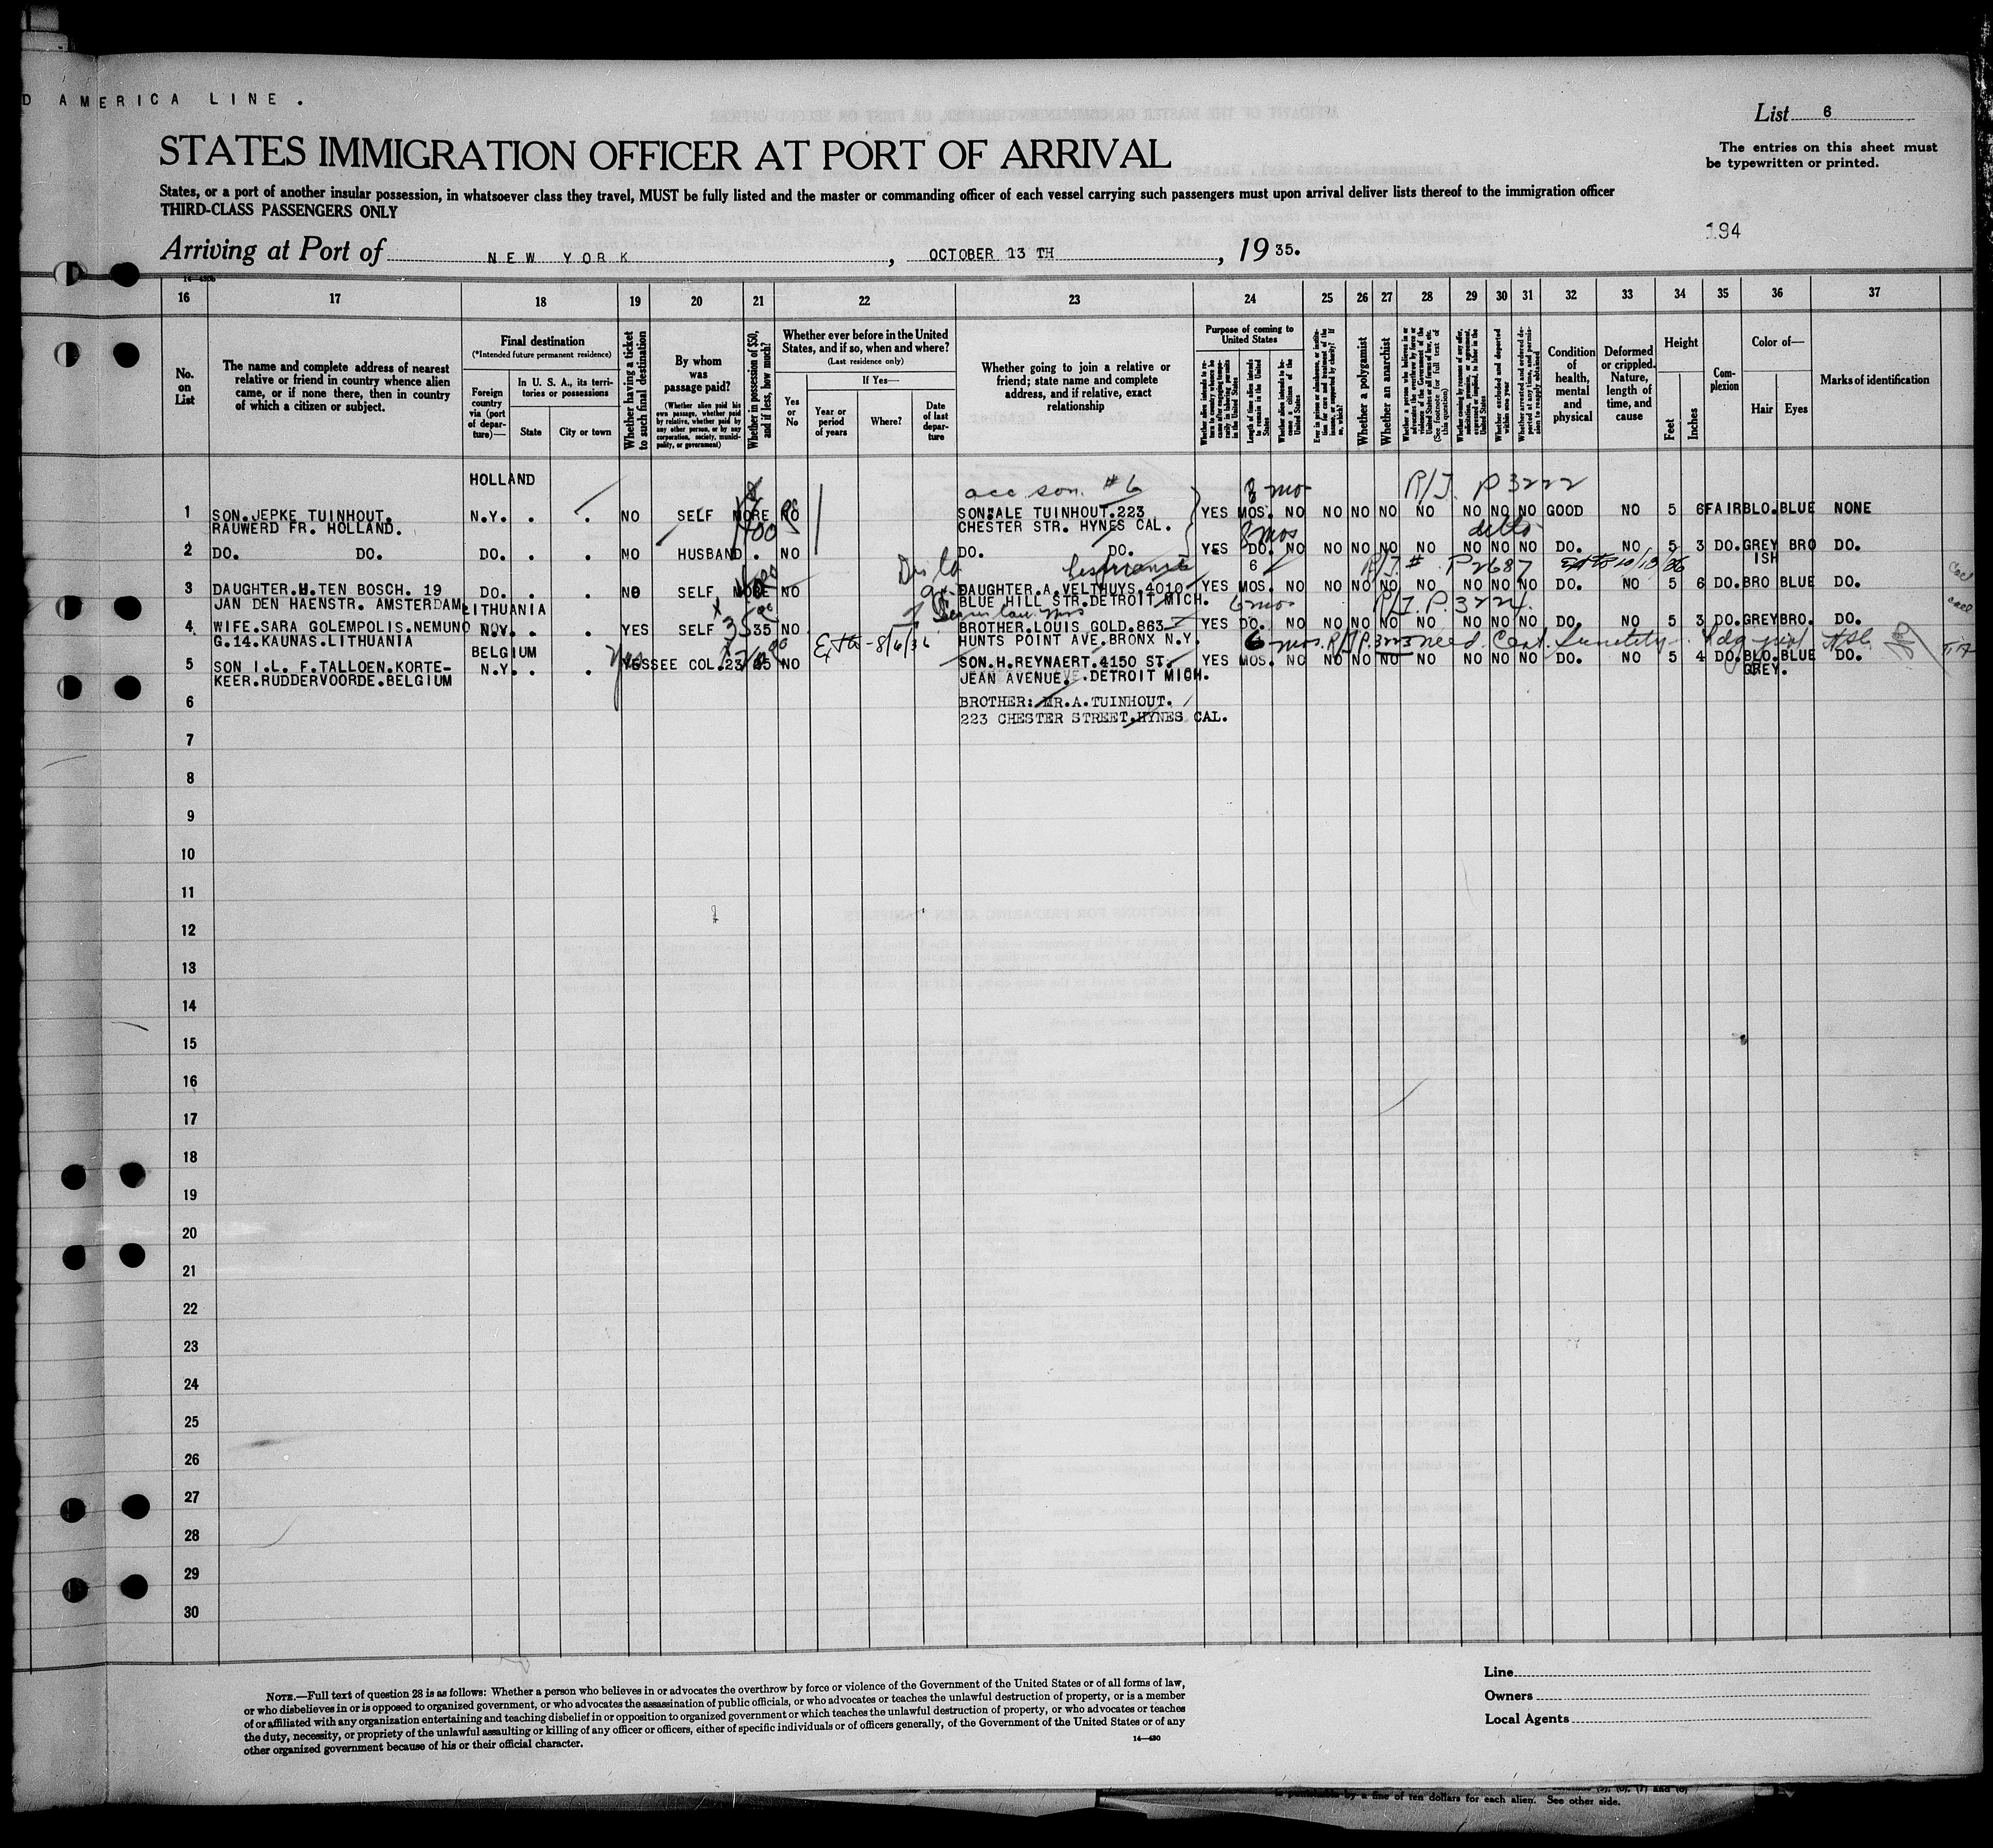 D AMERICA LINE.
List 6
STATES IMMIGRATION OFFICER AT PORT OF ARRIVAL
The entries on this sheet must
be typewritten or printed.
States, or a port of another insular possession, in whatsoever class they travel, MUST be fully listed and the master or commanding officer of each vessel carrying such passengers must upon arrival deliver lists thereof to the immigration officer
THIRD-CLASS PASSENGERS ONLY
194
Arriving at Port of NEW YORK, OCTOBER 13 TH, 19 35.
16 17 18 19 20 21 22 23 24 25 26 27 28 29 30 31 32 33 34 35 36 37
No. on List
The name and complete address of nearest relative or friend in country whence alien came, or if none there, then in country of which a citizen or subject.
Final destination
(*Intended future permanent residence)
Foreign country via (port of departure)—
In U. S. A., its territories or possessions
State
City or town
Whether having a ticket to such final destination
By whom was passage paid?
(Whether alien paid his own passage, whether paid by relative, whether paid by any other person, or by any corporation, society, municipality, or government)
Whether in possession of $50, and if less, how much?
Whether ever before in the United States, and if so, when and where?
(Last residence only)
Yes or No
If Yes—
Year or period of years
Where?
Date of last departure
Whether going to join a relative or friend; state name and complete address, and if relative, exact relationship
Purpose of coming to United States
Length of time alien intends to remain in the United States
Whether alien intends to become a citizen of the United States
Whether a polygamist
Whether an anarchist
Condition of health, mental and physical
Deformed or crippled. Nature, length of time, and cause
Height
Feet
Inches
Complexion
Color of—
Hair
Eyes
Marks of identification
HOLLAND
acc son. #6 8 mos R/J. P 3222
1 SON.JEPKE TUINHOUT. N.Y. . . NO SELF MORE NO SON:ALE TUINHOUT.223 YES MOS. NO NO NO NO NO NO NO NO GOOD NO 5 6 FAIR BLO. BLUE NONE
RAUWERD FR. HOLLAND. 100 CHESTER STR. HYNES CAL.
8 mos ditto
2 DO. DO. DO. . . NO HUSBAND . NO DO. DO. YES DO. NO NO NO NO NO NO NO NO DO. NO 5 3 DO. GREY BRO DO.
ISH
6 R/J.# P2687
3 DAUGHTER.H.TEN BOSCH. 19 DO. . . NO SELF MORE NO DAUGHTER.A.VELTHUYS.4010 YES MOS. NO NO NO NO NO NO NO NO DO. NO 5 6 DO. BRO BLUE DO.
JAN DEN HAENSTR. AMSTERDAM BLUE HILL STR.DETROIT MICH.
LITHUANIA 6 mos R/J. P.3224.
4 WIFE.SARA GOLEMPOLIS.NEMUNO N.Y. . . YES SELF 35 NO BROTHER.LOUIS GOLD.863 YES DO. NO NO NO NO NO NO NO NO DO. NO 5 3 DO. GREY BRO. DO.
G.14.KAUNAS.LITHUANIA HUNTS POINT AVE.BRONX N.Y.
BELGIUM Yes Ext 8/6/36 6 mos. R/J P.3223 need
5 SON I.L. F.TALLOEN.KORTE- N.Y. . . YES SEE COL.23 NO SON.H.REYNAERT.4150 ST. YES MOS. NO NO NO NO NO NO NO NO DO. NO 5 4 DO. BLO. BLUE DO.
KEER.RUDDERVOORDE.BELGIUM JEAN AVENUE. DETROIT MICH. GREY.
6 BROTHER: MR.A.TUINHOUT.
223 CHESTER STREET.HYNES CAL.
7
8
9
10
11
12
13
14
15
16
17
18
19
20
21
22
23
24
25
26
27
28
29
30
NOTE.—Full text of question 28 is as follows: Whether a person who believes in or advocates the overthrow by force or violence of the Government of the United States or of all forms of law,
or who disbelieves in or is opposed to organized government, or who advocates the assassination of public officials, or who advocates or teaches the unlawful destruction of property, or is a member
of or affiliated with any organization entertaining and teaching disbelief in or opposition to organized government or which teaches the unlawful destruction of property, or who advocates or teaches
the duty, necessity, or propriety of the unlawful assaulting or killing of any officer or officers, either of specific individuals or of officers generally, of the Government of the United States or of any
other organized government because of his or their official character.
14—430
Line
Owners
Local Agents
is punishable by a fine of ten dollars for each alien. See other side.